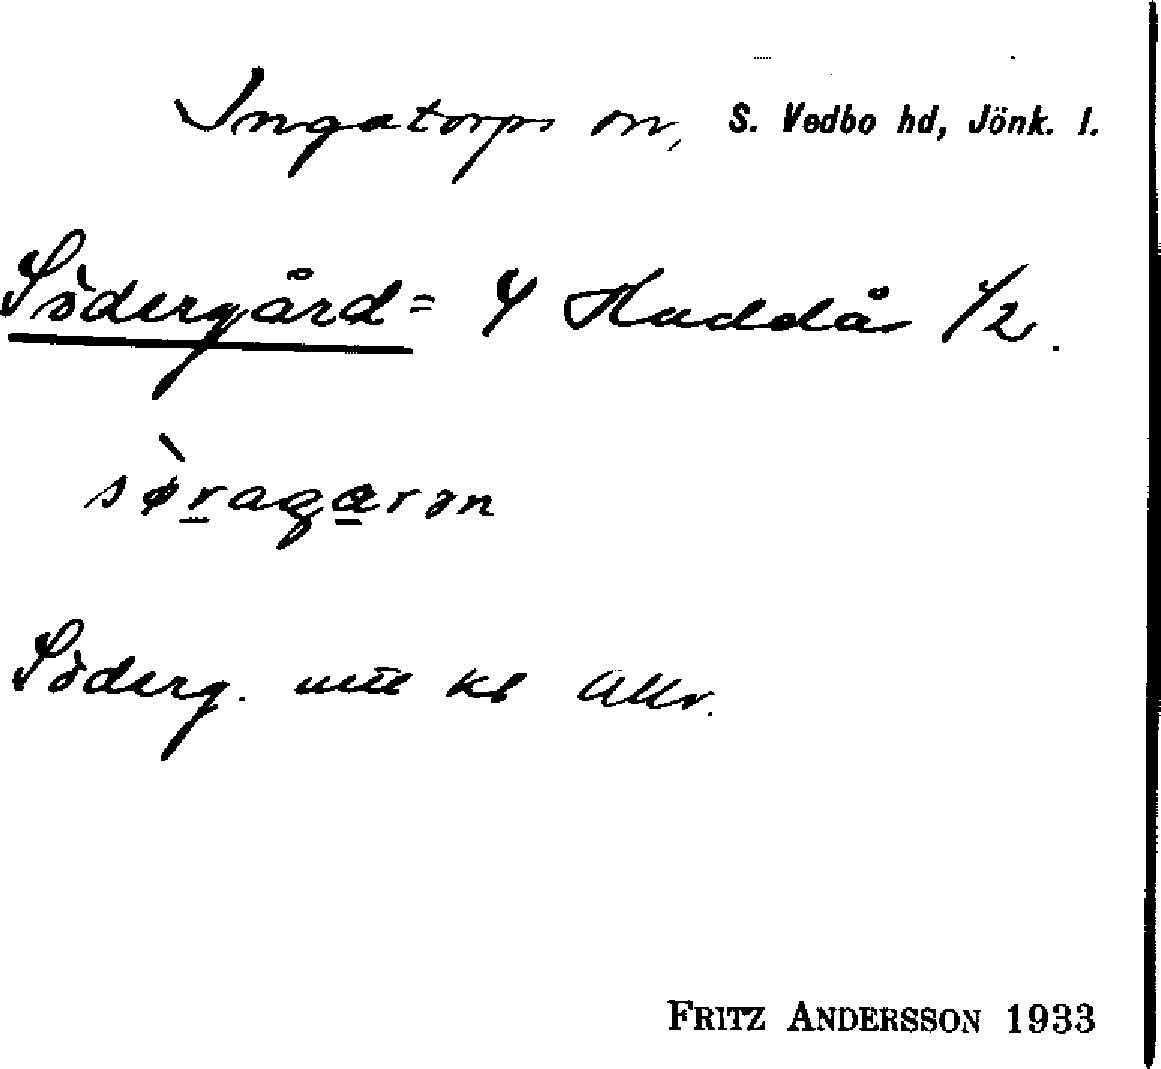 Ingatorps sn, S. Vedbo hd, Jönk. l.
Södergård = 4 Haddå 1/2.
sø̀ragarən
Söderg. uté kt Allr.
FRITZ ANDERSSON 1933